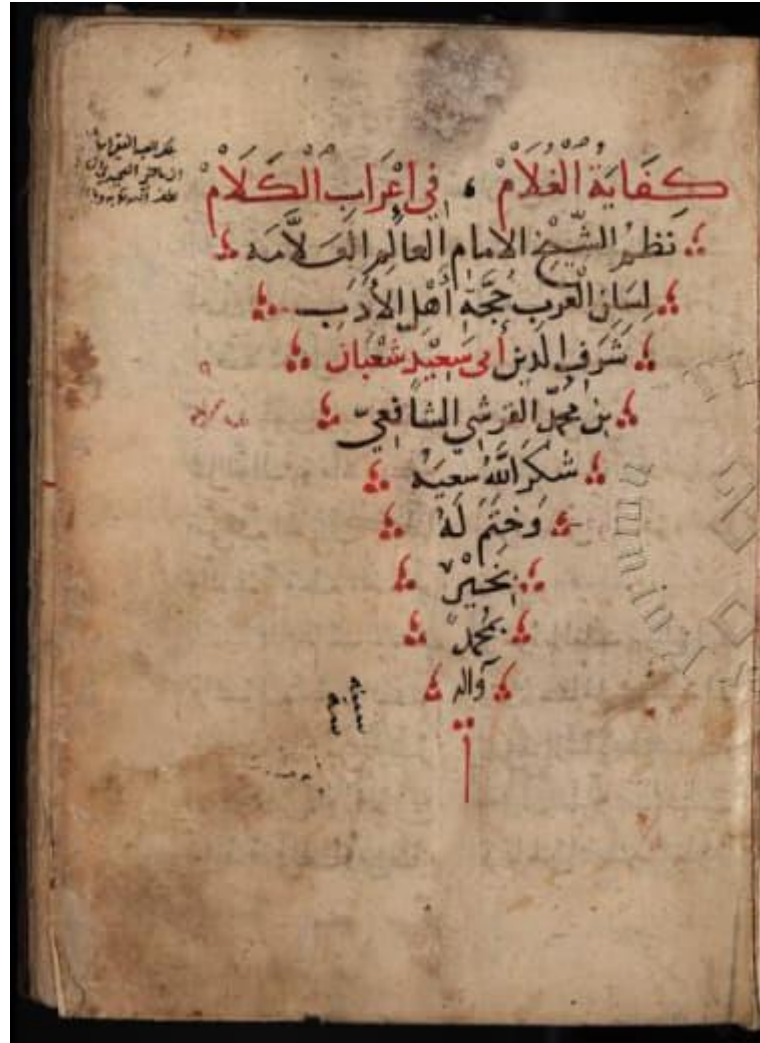 كِفَايَةُ الْغُلَامْ ، فِي اعْرَابِ الْكَلَامْ
نَظْمُ الشَّيْخِ الامام العالِمِ العَلَّامَه
لِسَانِ الْعَرَبِ حُجَّةِ أَهْلِ الأَدَبِ
شَرَفِ الدِّينِ أَبِي سَعِيدٍ شَعْبَانَ
بْنِ مُحَمَّدٍ القرشيِ الشافعيّ
شَكَرَ اللَّهُ سَعْيَهُ
وَخَتَمَ لَهُ
بِخَيْرٍ
بمُحَمَّدٍ
وَآله